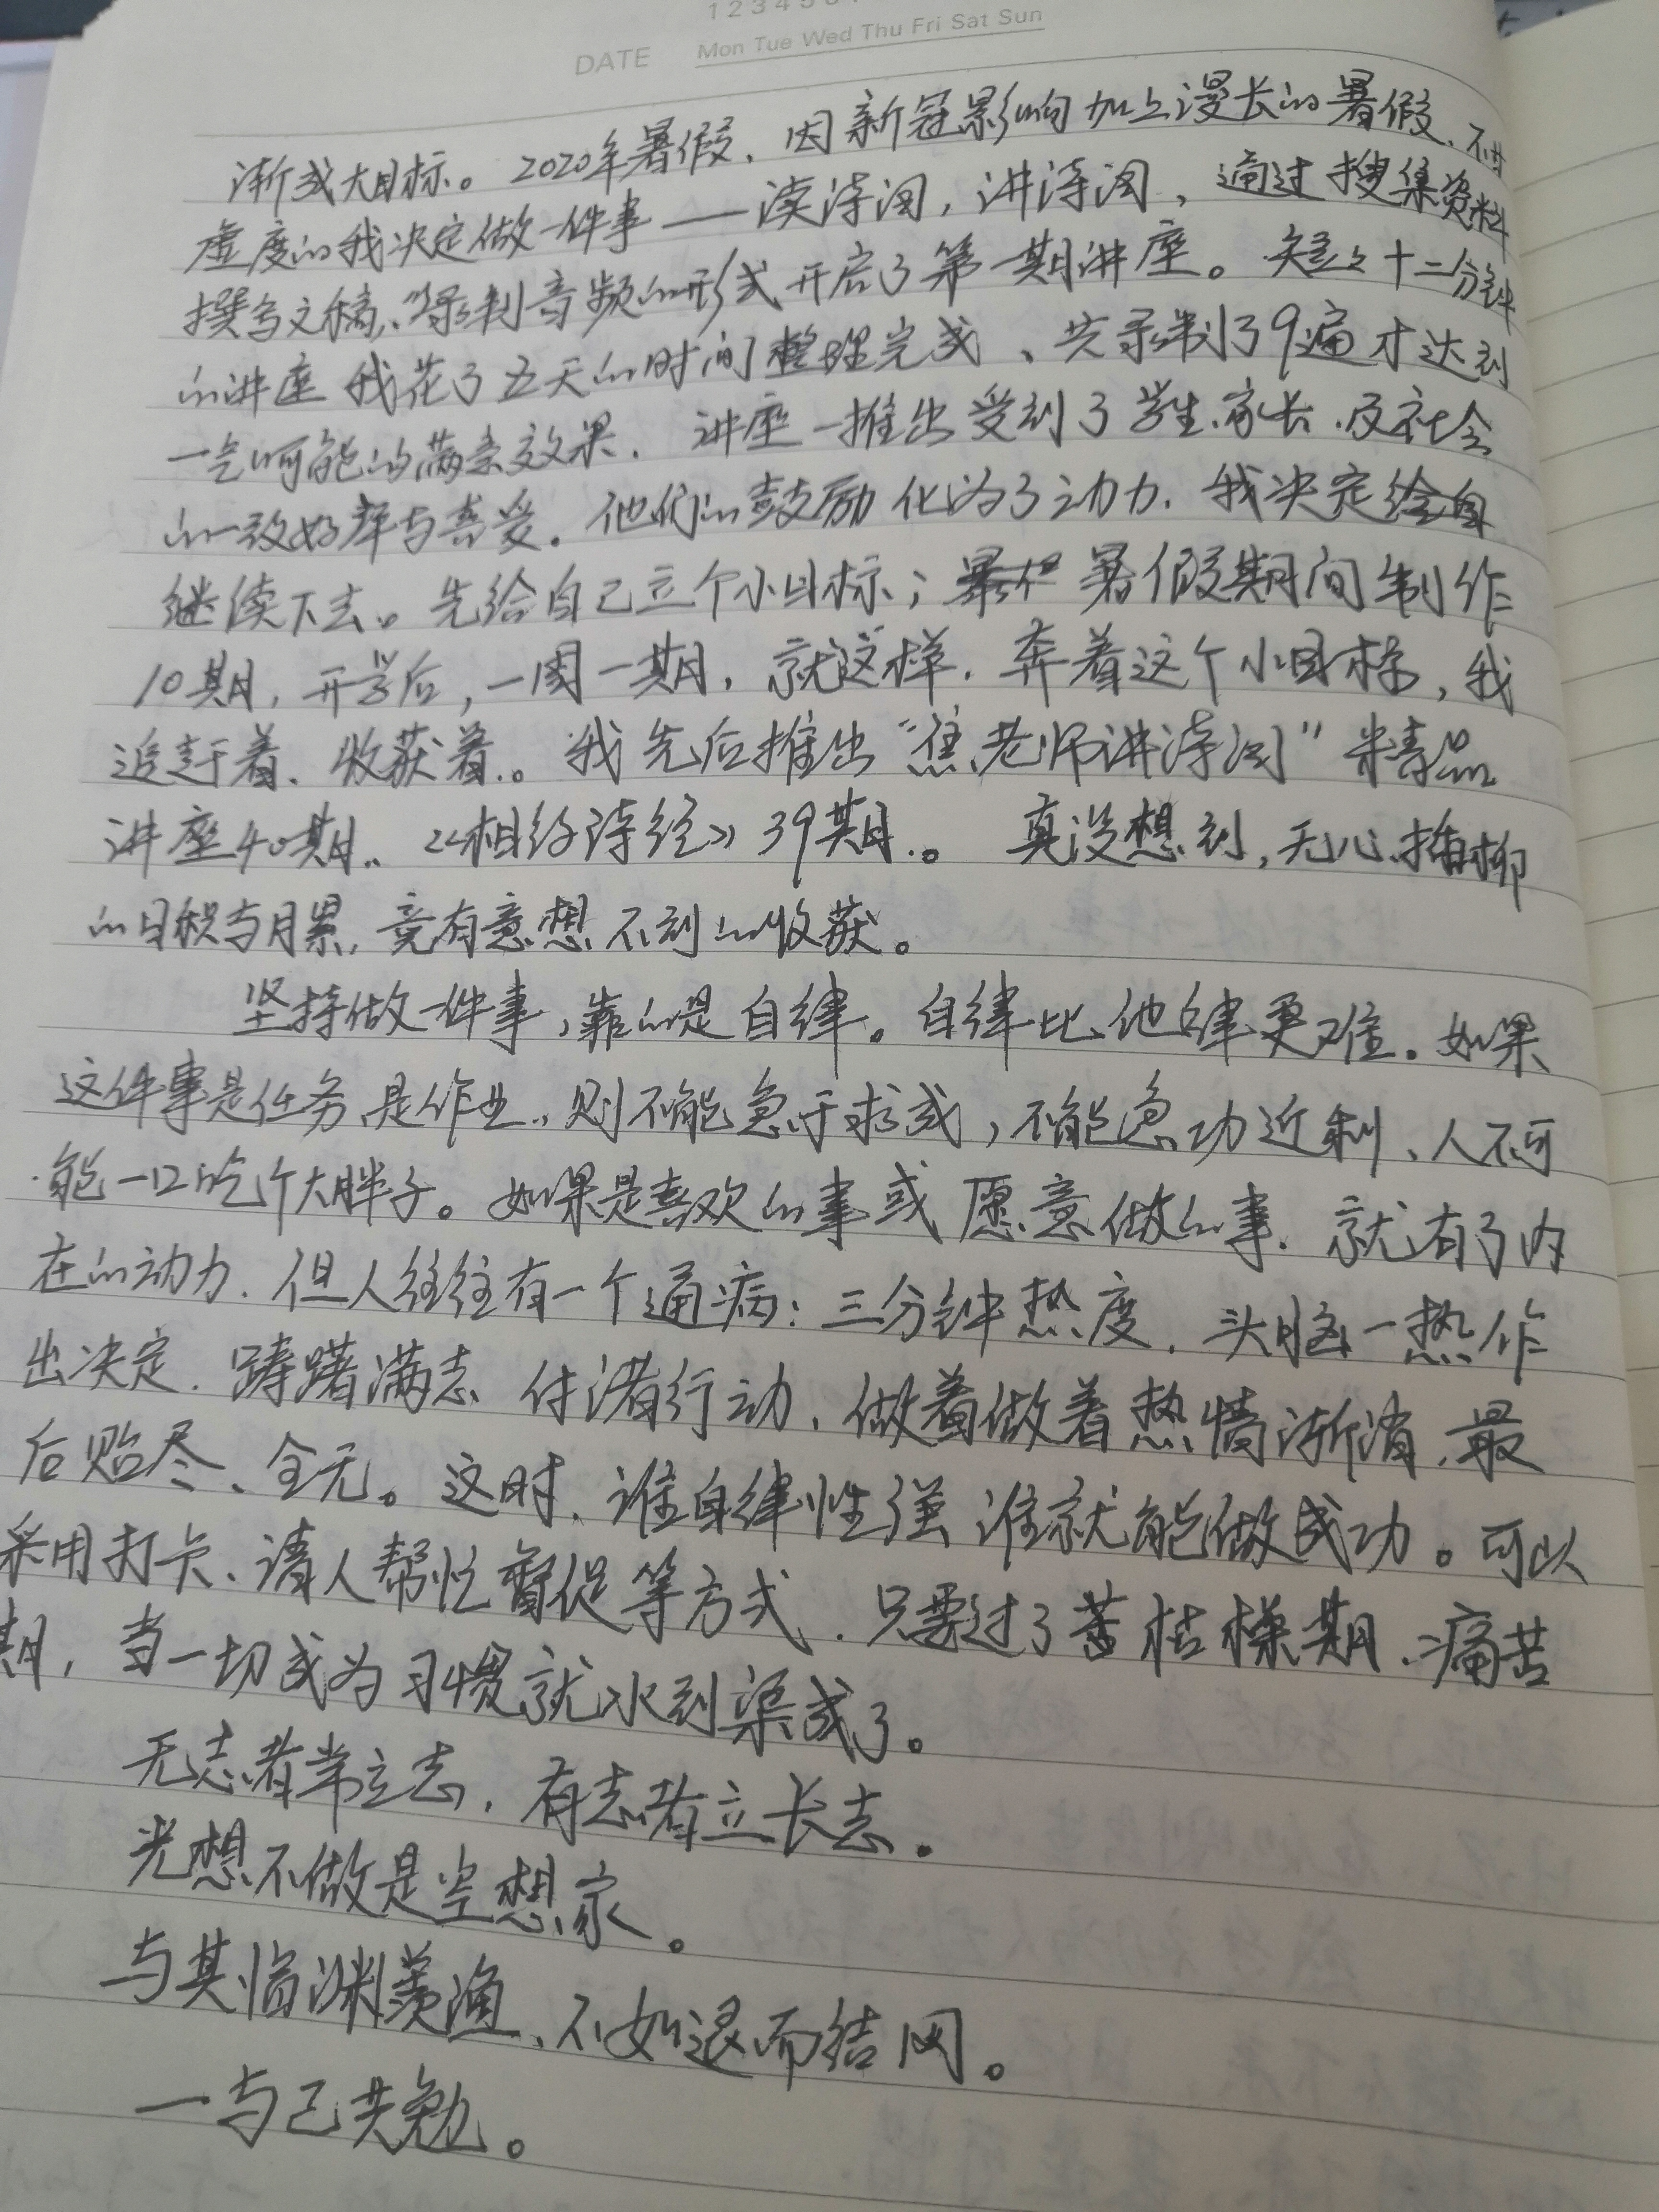 1 2 3 4 5 6
DATE Mon Tue Wed Thu Fri Sat Sun
渐成大目标。2020年暑假，因新冠影响加上漫长的暑假、不甘
虚度的我决定做一件事——读诗词，讲诗词，通过搜集资料
撰写文稿、录制音频的形式开启了第一期讲座。短短十二分钟
的讲座我花了五天的时间整理完成、共录制了9遍才达到
一气呵能的满意效果．讲座一推出受到了学生、家长、及社会
的一致好评与喜爱。他们的鼓励化为了动力，我决定
继续下去。先给自己立个小目标；暑假期间制作
10期，开学后，一周一期，就这样，奔着这个小目标，我
追赶着、收获着。我先后推出“焦老师讲诗词”精品
讲座40期、《相约诗经》39期。真没想到，无心插柳
的日积与月累，竟有意想不到的收获。
坚持做一件事，靠的是自律。自律比他律更难。如果
这件事是任务、是作业、则不能急于求成，不能急功近利、人不可
能一口吃个大胖子。如果是喜欢的事或愿意做的事．就有了内
在的动力．但人往往有一个通病：三分钟热度，头脑一热作
出决定．踌躇满志付诸行动，做着做着热情渐消，最
后贻尽、全无。这时，谁自律性强谁就能做成功。可以
采用打卡、请人帮忙督促等方式．只要过了枯燥期、痛苦
期，当一切成为习惯就水到渠成了。
无志者常立志，有志者立长志。
光想不做是空想家。
与其临渊羡渔、不如退而结网。
一与己共勉。